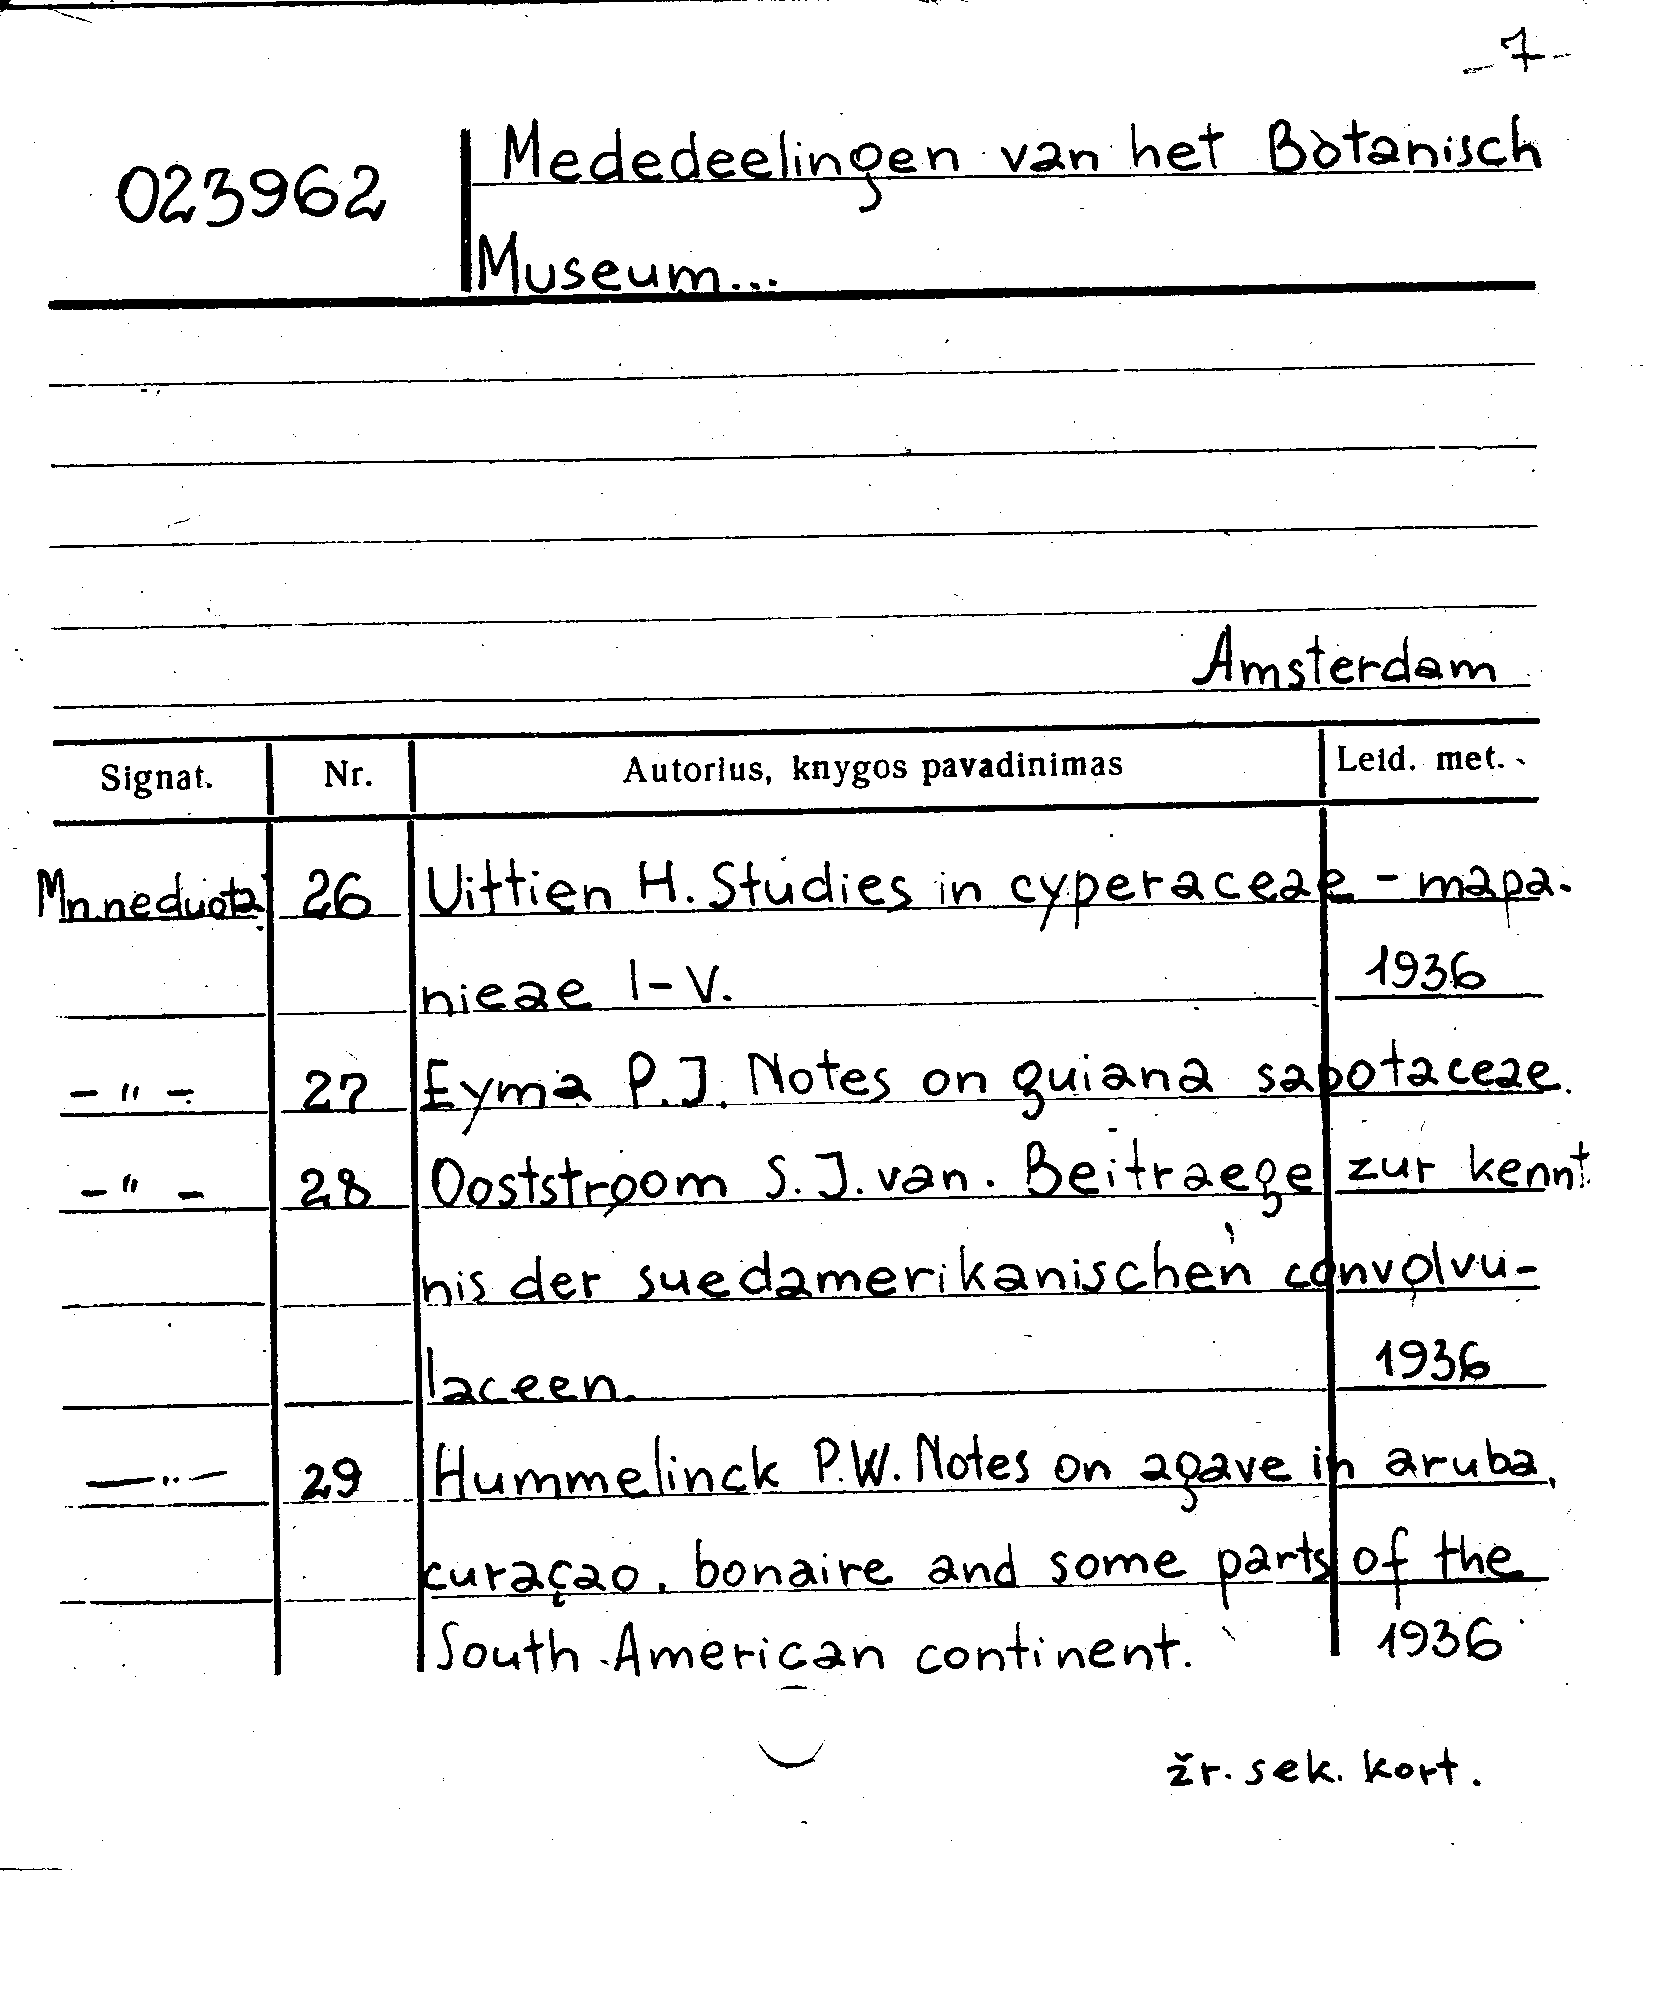 -7-
023962 Mededeelingen van het Botanisch
Museum...
Amsterdam
Signat. Nr. Autorius, knygos pavadinimas Leid. met.
Mn neduota 26 Uittien H. Studies in cyperaceae - mapa-
nieae I-V. 1936
- " - 27 Eyma P.J. Notes on guiana sapotaceae.
- " - 28 Ooststroom S.J. van. Beitraege zur kennt
nis der suedamerikanischen convolvu-
laceen. 1936
- " - 29 Hummelinck P.W. Notes on agave in aruba,
curaçao, bonaire and some parts of the
South American continent. 1936
žr. sek. kort.